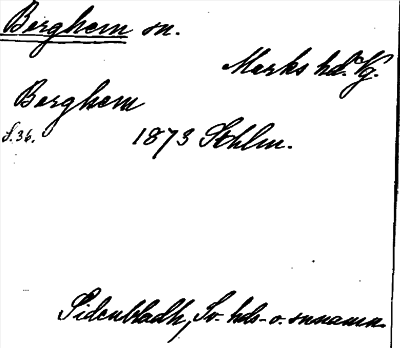 Berghem sn.
Marks hd. Vg.
Berghem
S. 36.
1873 Sthlm.
Sidenbladh, Sv. hds- o. snnamn.